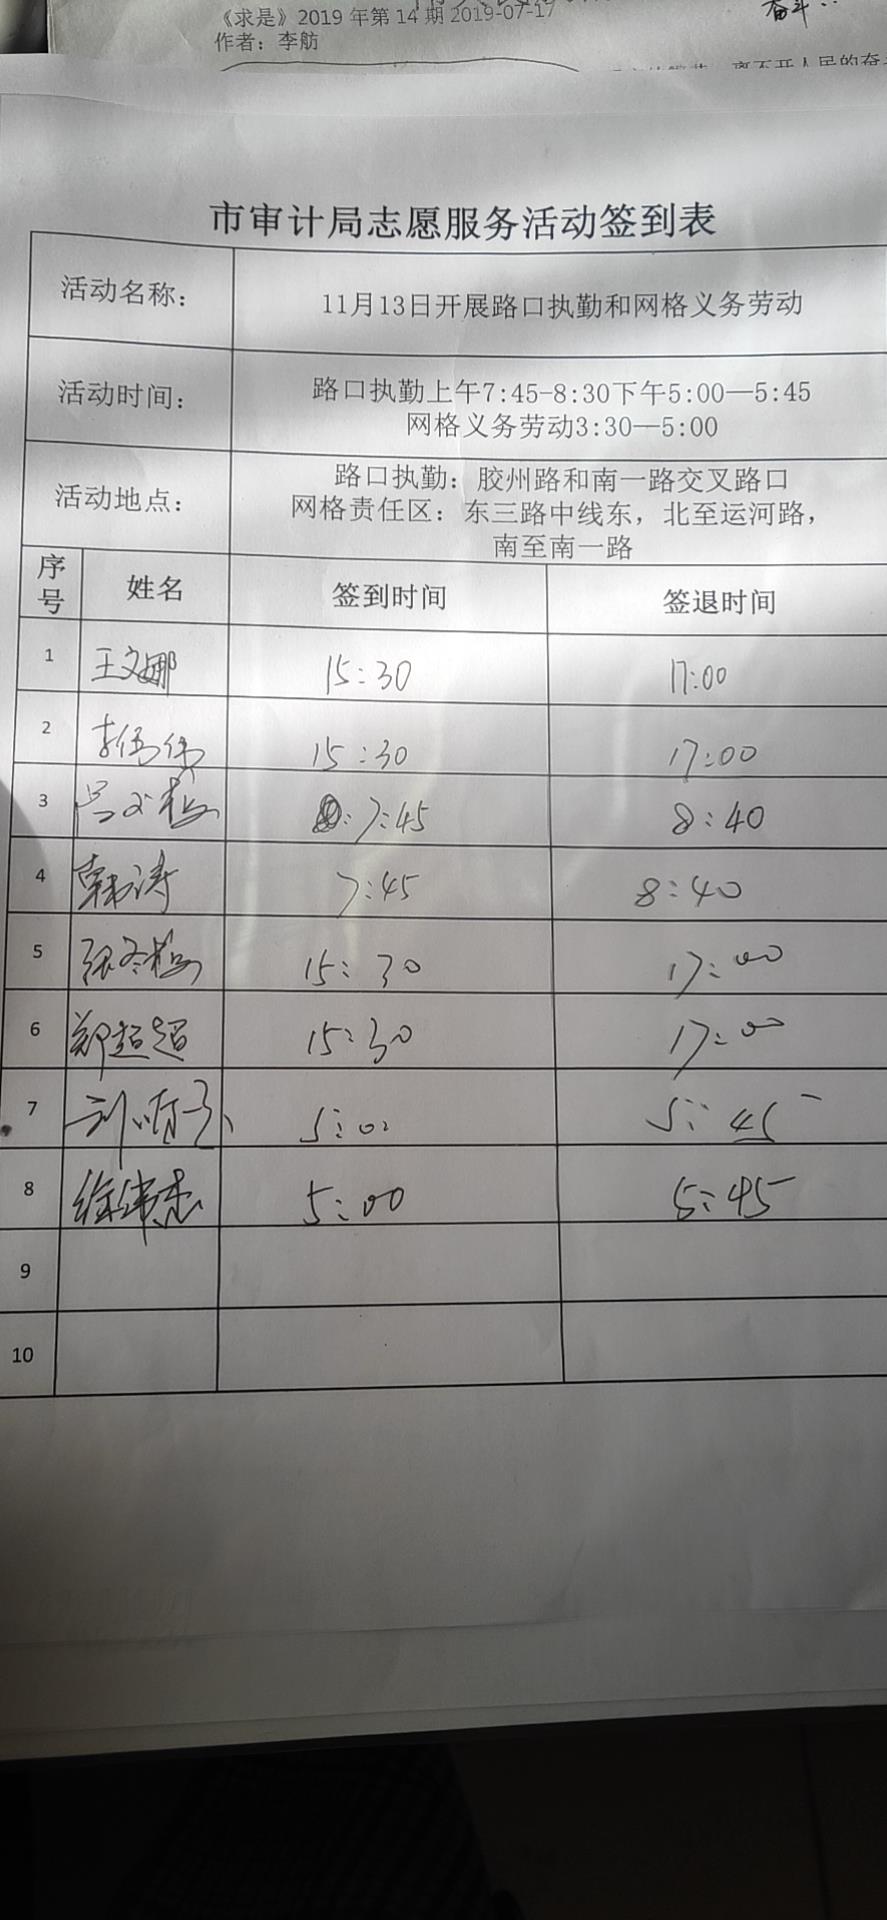 《求是》2019 年第 14 期 2019-07-17
作者：李舫
奋斗
离不开人民的奋
市审计局志愿服务活动签到表
活动名称：
11月13日开展路口执勤和网格义务劳动
活动时间：
路口执勤上午7:45-8:30下午5:00—5:45
网格义务劳动3:30—5:00
活动地点：
路口执勤：胶州路和南一路交叉路口
网格责任区：东三路中线东，北至运河路，
南至南一路
序号 姓名 签到时间 签退时间
1 王文娜 15:30 17:00
2 李伟伟 15:30 17:00
3 7:45 8:40
4 韩涛 7:45 8:40
5 张冬梅 15:30 17:00
6 郑超超 15:30 17:00
7 5:00 5:45
8 5:00 5:45
9
10